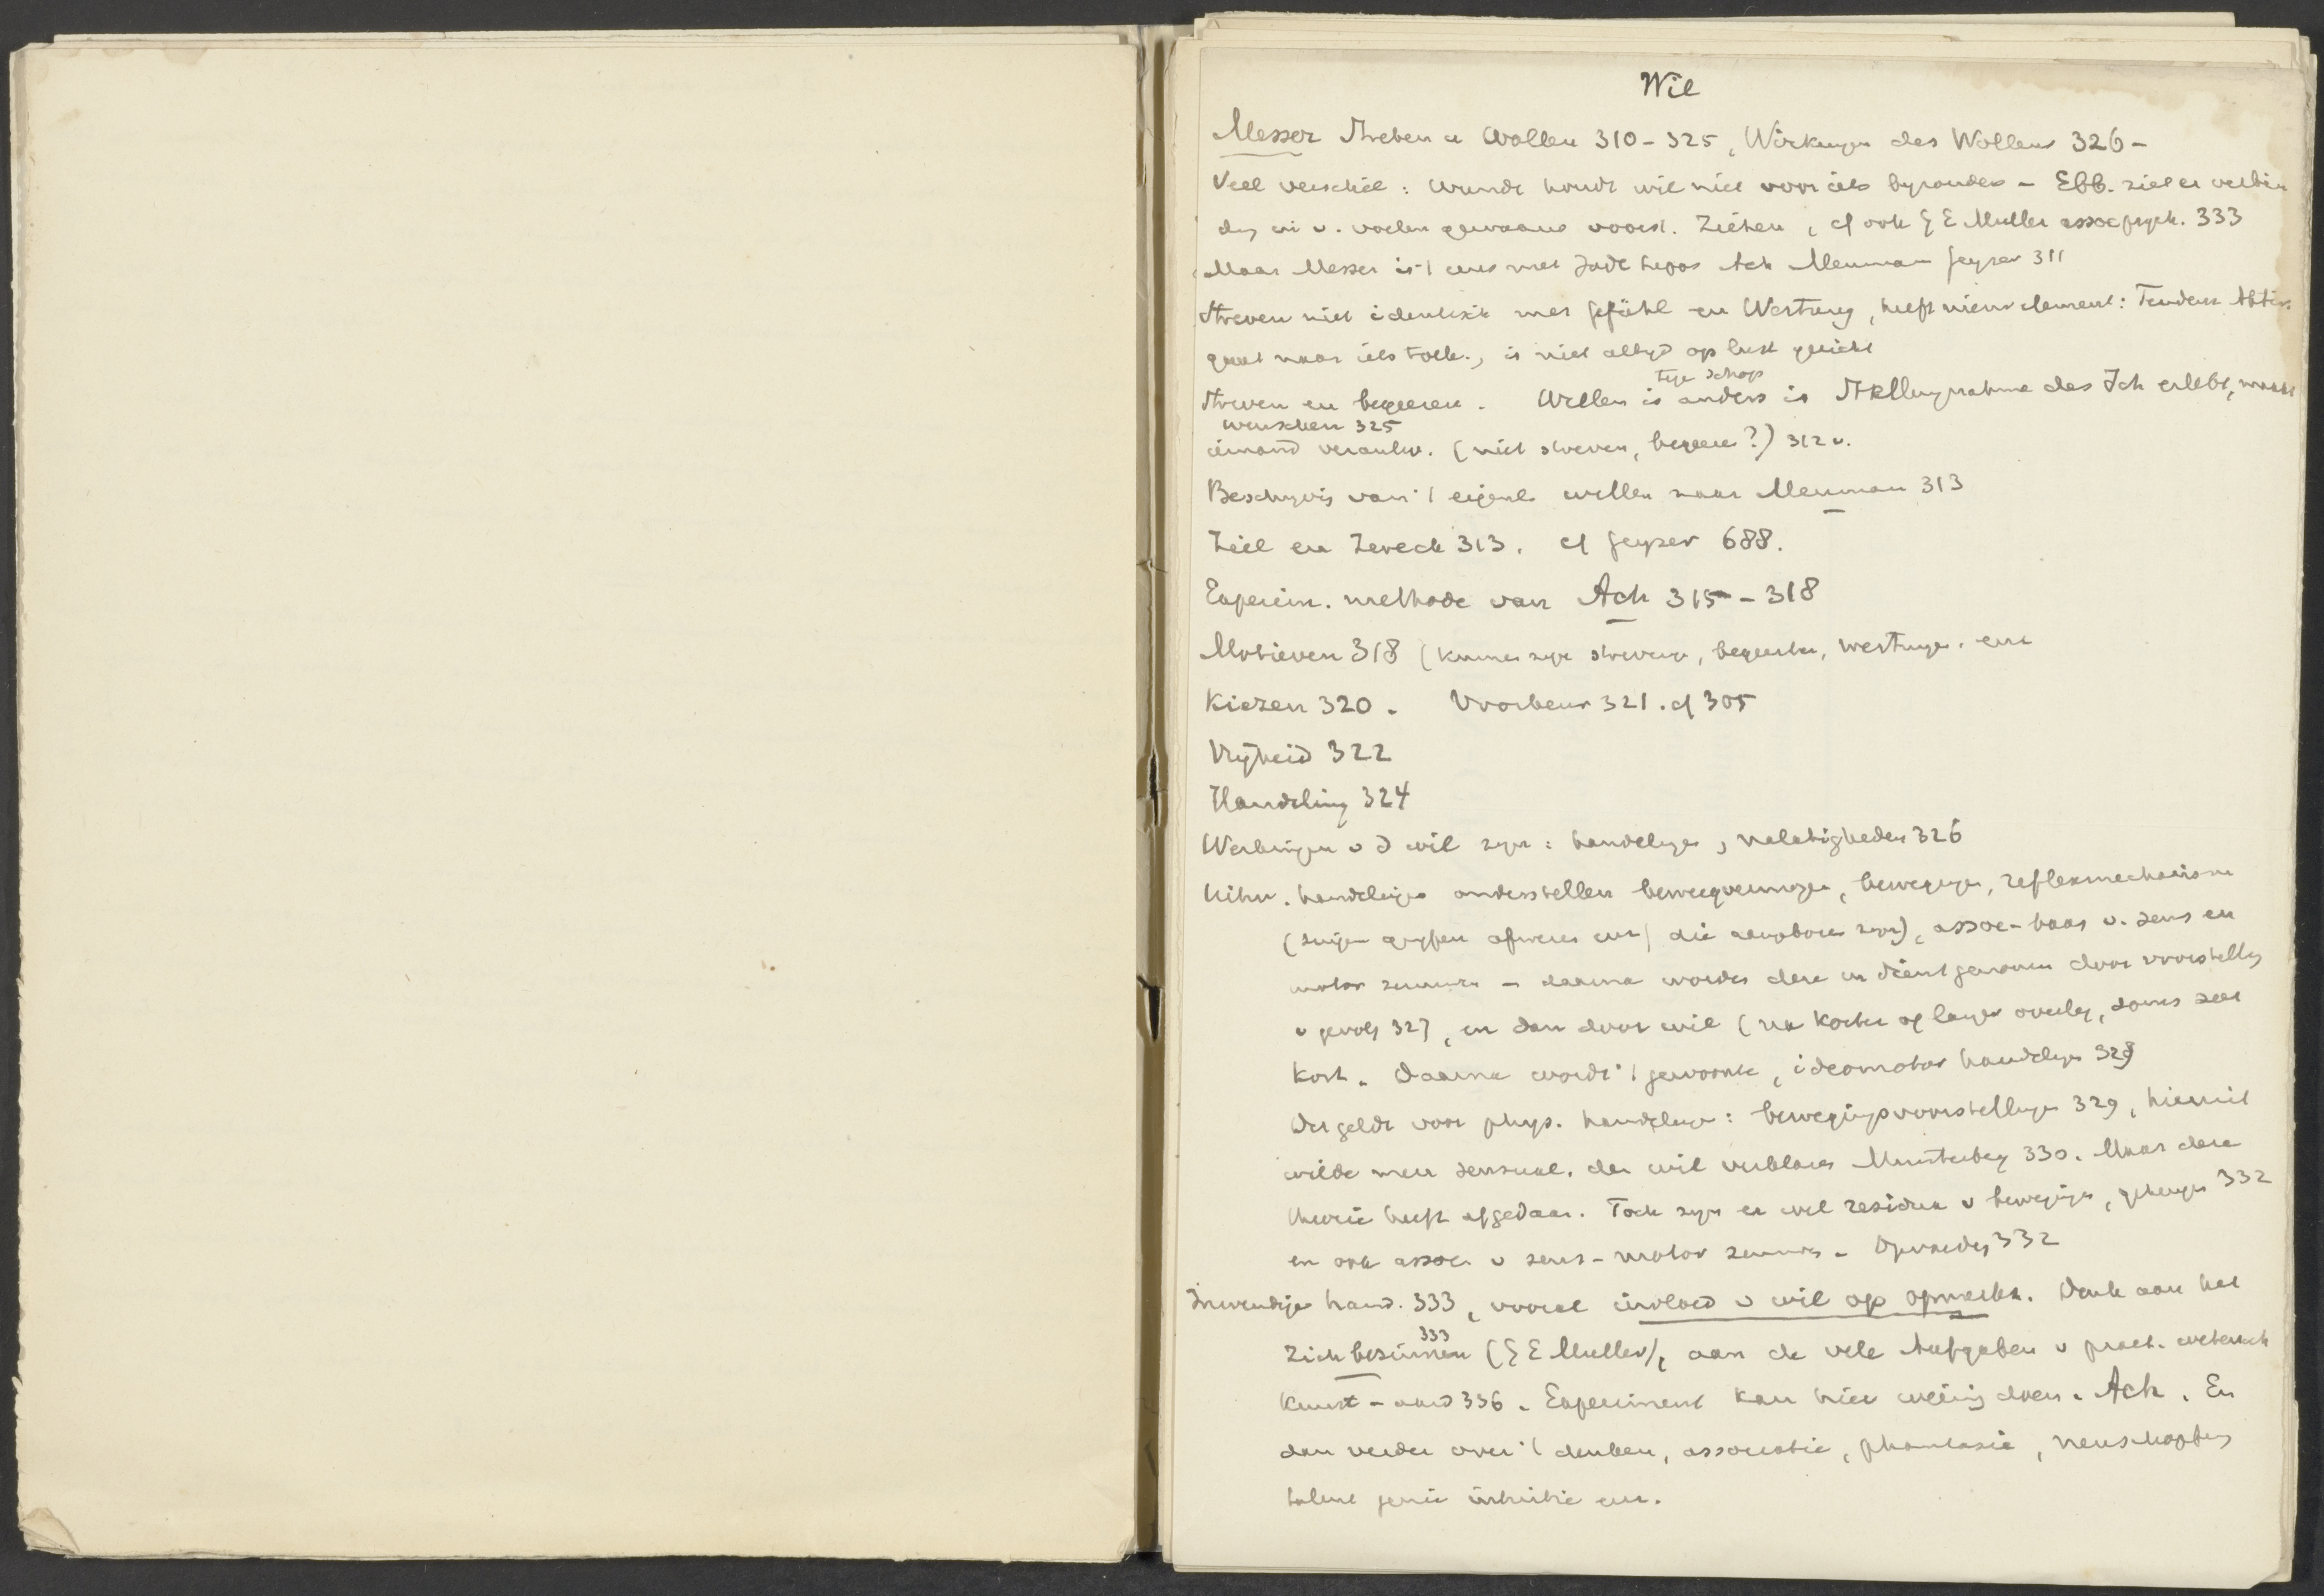 Wil
Messer Streben u Wollen 310-325, Wirkungen des Wollens 326-
Veel verschil: Wundt houdt wil niet voor iets byzonders - Ebb. ziet er verbin
ding in v. voelen gewaarw voorst. Ziehen, cf ook G E Muller assoc psych. 333
Maar Messer is 't eens met Jodl Lipps Ach Meuman Geyser 311
Streven niet identisch met Gefühl en Wertung, heeft nieuw element: Tendenz Aktiv.
gaat naar iets toek., is niet altyd op lust gericht
Streven en begeeren. Willen is anders is Stellungnahme des Ich erlebt, maakt
wenschen 325
iemand verantw. (niet streven, begeeren?) 312 v.
Beschryvig van 't eigenl willen naar Meuman 313
Ziel en Zweck 313. cf Geyser 688.
Experim. methode van Ach 315-318
Motieven 318 (kunnen zyn strevingen, begeerten, Wertungen. enz
Kiezen 320. Voorkeur 321. cf 305
Vrijheid 322
Handeling 324
Werkingen v d wil zyn: handelingen, nalatigheden 326
Uitw. handelingen onderstellen beweegvermogen, bewegingen, reflexmechanisme
(zuigen grypen afweren enz) die aangeboren zyn), assoc-baar v. sens en
motor zenuwen - daarna worden deze in dienst genomen door voorstelling
v gevolg 327, en dan door wil (na korter of langer overleg, soms zeer
kort. Daarna wordt 't gewoonte, ideomotor handelingen 328
Dit geldt voor phys. handelingen: bewegingsvoorstellingen 329, hieruit
wilde men sensual. den wil verklaren Munsterberg 330. Maar deze
theorie heeft afgedaan. Toch zyn er wel residua v bewegingen, geheugen 332
en ook assoc. v sens-motor zenuwen - Opvoeding 332
Inwendige hand. 333, vooral invloed v wil op opmerken. Denk aan het
333
Zich besinnen (G E Muller), aan de vele Aufgaben v pract. wetensch
Kunst-aard 336. Experiment kan hier weinig doen. Ach. En
dan verder over 't denken, associatie, phantasie, nieuwschepping
talent genie intuitie enz.